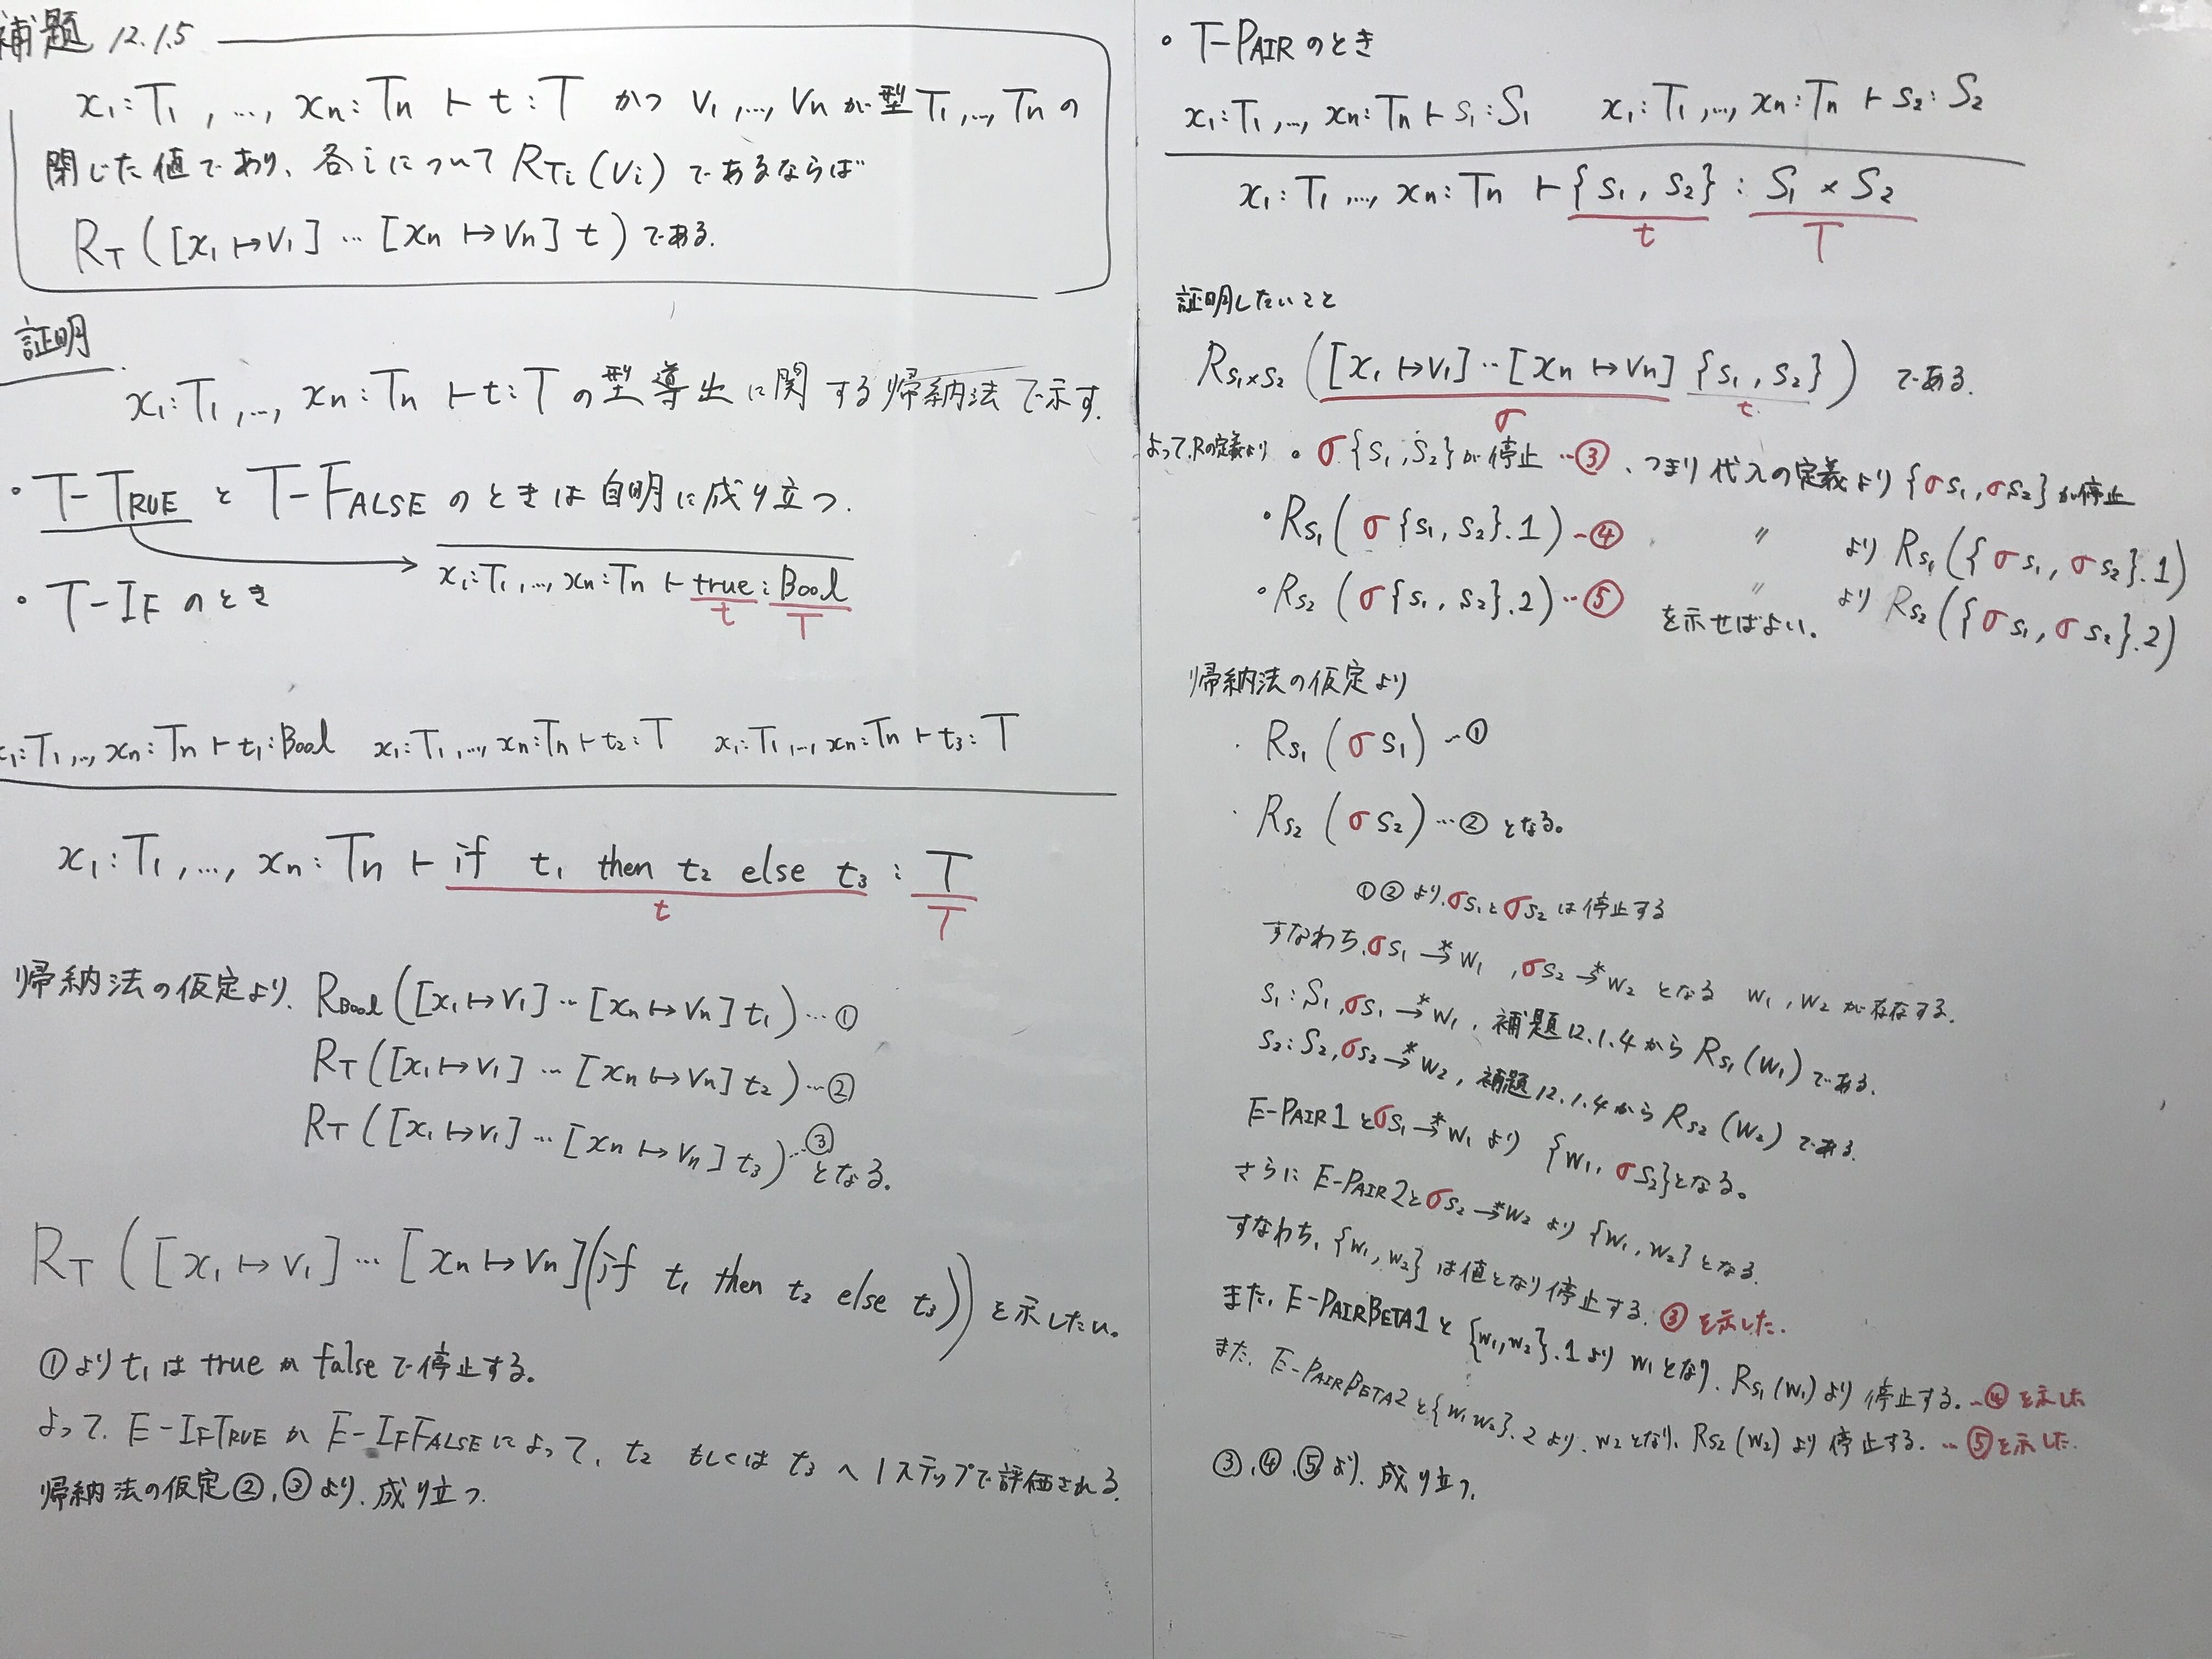 補題 12.1.5
x₁:T₁,…, xn:Tn ⊢ t:T かつ v₁,…, vn が型T₁,…,Tnの
閉じた値であり、各iについて R_Ti(vi) であるならば
R_T([x₁↦v₁]…[xn↦vn] t) である.
証明
x₁:T₁,…, xn:Tn ⊢ t:T の型導出に関する帰納法で示す.
• T-TRUE と T-FALSE のときは自明に成り立つ.
x₁:T₁,…, xn:Tn ⊢ true : Bool
t T
• T-IF のとき
x₁:T₁,…, xn:Tn ⊢ t₁:Bool x₁:T₁,…, xn:Tn ⊢ t₂:T x₁:T₁,…, xn:Tn ⊢ t₃:T
x₁:T₁,…, xn:Tn ⊢ if t₁ then t₂ else t₃ : T
t T
帰納法の仮定より、 R_Bool([x₁↦v₁]…[xn↦vn] t₁)…①
R_T([x₁↦v₁]…[xn↦vn] t₂)…②
R_T([x₁↦v₁]…[xn↦vn] t₃)…③
となる.
R_T([x₁↦v₁]…[xn↦vn](if t₁ then t₂ else t₃)) を示したい.
①より t₁ は true か false で停止する.
よって、E-IFTRUE か E-IFFALSE によって、t₂ もしくは t₃ へ1ステップで評価される.
帰納法の仮定②,③より、成り立つ.
• T-PAIR のとき
x₁:T₁,…, xn:Tn ⊢ s₁:S₁ x₁:T₁,…, xn:Tn ⊢ s₂:S₂
x₁:T₁,…, xn:Tn ⊢ {s₁, s₂} : S₁ × S₂
t T
証明したいこと
R_S₁×S₂([x₁↦v₁]…[xn↦vn] {s₁, s₂}) である.
σ t
よって、Rの定義より • σ{s₁, s₂}が停止…③、つまり代入の定義より {σs₁, σs₂}が停止
• R_S₁(σ{s₁, s₂}.1)…④ 〃 より R_S₁({σs₁, σs₂}.1)
• R_S₂(σ{s₁, s₂}.2)…⑤ 〃 より R_S₂({σs₁, σs₂}.2)
を示せばよい.
帰納法の仮定より
・R_S₁(σs₁)…①
・R_S₂(σs₂)…② となる。
①②より、σs₁とσs₂は停止する
すなわち、σs₁→*w₁ , σs₂→*w₂ となる w₁, w₂ が存在する.
s₁:S₁, σs₁→*w₁, 補題12.1.4から R_S₁(w₁) である.
s₂:S₂, σs₂→*w₂, 補題12.1.4から R_S₂(w₂) である.
E-PAIR1とσs₁→*w₁より {w₁, σs₂}となる。
さらに E-PAIR2とσs₂→*w₂より {w₁, w₂}となる.
すなわち、{w₁, w₂}は値となり停止する. ③を示した.
また、E-PAIRBETA1と{w₁, w₂}.1より w₁となり、R_S₁(w₁)より停止する.…④を示した
また、E-PAIRBETA2と{w₁ w₂}.2より、w₂となり、R_S₂(w₂)より停止する.…⑤を示した.
③,④,⑤より、成り立つ.